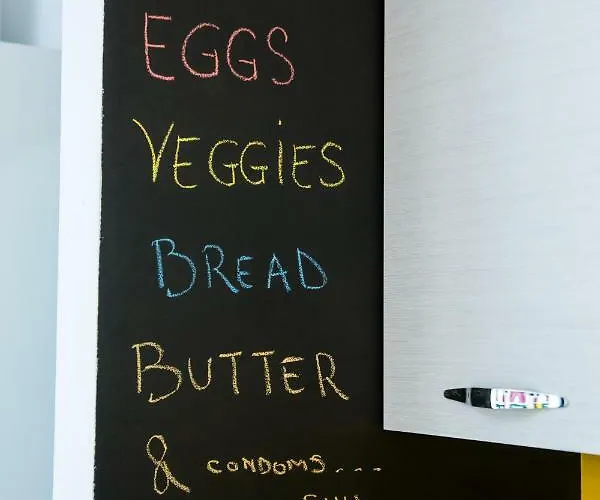 EGGS
VEGGiES
BREAD
BUTTER
& CONDOMS...